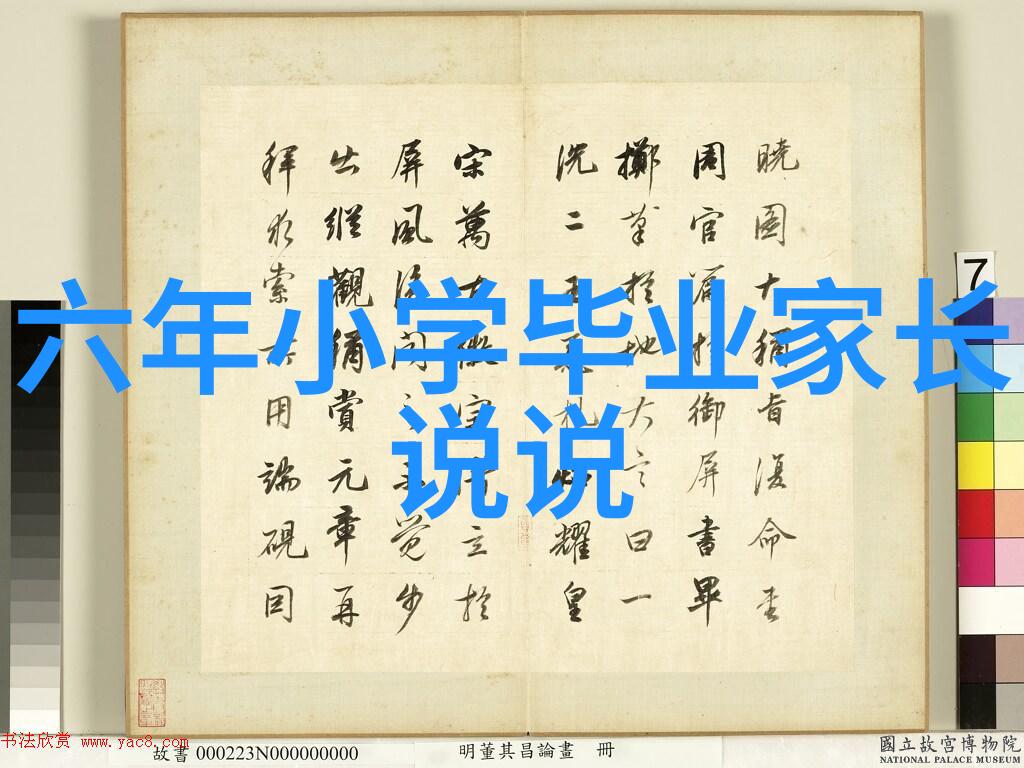 六年小学毕业家长
说说
曉圖大稱旨復命書
周官篇於御屏書畢
擲筆於地大言曰一
洗二王惡札照耀皇
宋萬古徽宗潛立於
屏風後聞之不覺步
出縱觀稱賞元章再
拜求索所用端硯因
7
书法欣赏 www.yac8.com
故書 000223N000000000
明董其昌論畫 冊
國立故宮博物院
NATIONAL PALACE MUSEUM